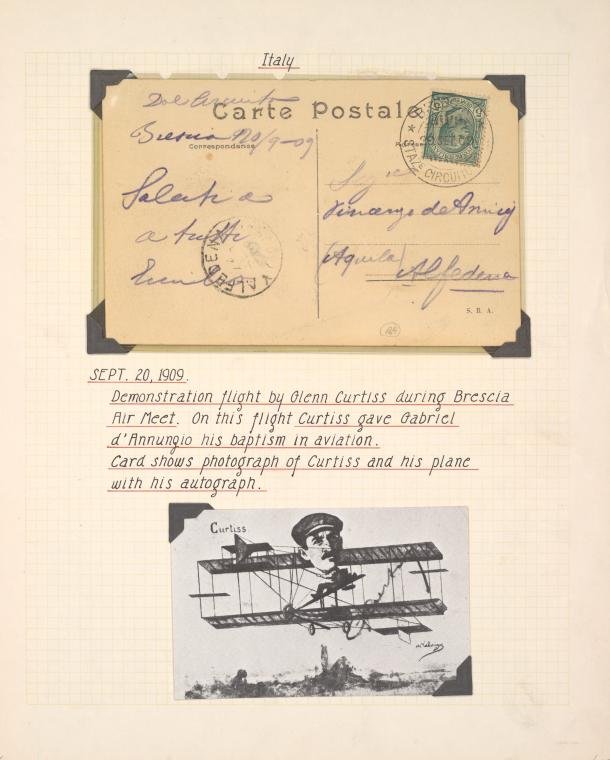 Italy
Dal Circuito
Carte Postale
Brescia 20/9-09
Correspondance
Saluti a
a tutti
ALFEDENA
Vincenzo de Amicis
(Aquila) Alfedena
S. B. A.
SEPT. 20, 1909.
Demonstration flight by Glenn Curtiss during Brescia
Air Meet. On this flight Curtiss gave Gabriel
d'Annunzio his baptism in aviation.
Card shows photograph of Curtiss and his plane
with his autograph.
Curtiss